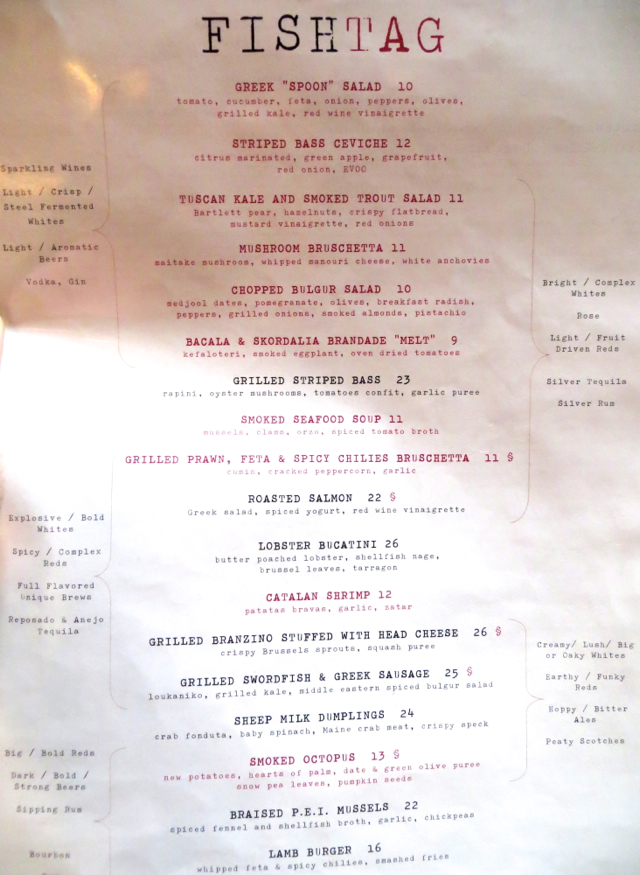 FISHTAG
GREEK "SPOON" SALAD 10
tomato, cucumber, feta, onion, peppers, olives,
grilled kale, red wine vinaigrette
STRIPED BASS CEVICHE 12
citrus marinated, green apple, grapefruit,
red onion, EVOO
TUSCAN KALE AND SMOKED TROUT SALAD 11
Bartlett pear, hazelnuts, crispy flatbread,
mustard vinaigrette, red onions
MUSHROOM BRUSCHETTA 11
maitake mushroom, whipped manouri cheese, white anchovies
CHOPPED BULGUR SALAD 10
medjool dates, pomegranate, olives, breakfast radish,
peppers, grilled onions, smoked almonds, pistachio
BACALA & SKORDALIA BRANDADE "MELT" 9
kefaloteri, smoked eggplant, oven dried tomatoes
GRILLED STRIPED BASS 23
rapini, oyster mushrooms, tomatoes confit, garlic puree
SMOKED SEAFOOD SOUP 11
mussels, clams, orzo, spiced tomato broth
GRILLED PRAWN, FETA & SPICY CHILIES BRUSCHETTA 11 §
cumin, cracked peppercorn, garlic
ROASTED SALMON 22 §
Greek salad, spiced yogurt, red wine vinaigrette
LOBSTER BUCATINI 26
butter poached lobster, shellfish nage,
brussel leaves, tarragon
CATALAN SHRIMP 12
patatas bravas, garlic, zatar
GRILLED BRANZINO STUFFED WITH HEAD CHEESE 26 §
crispy Brussels sprouts, squash puree
GRILLED SWORDFISH & GREEK SAUSAGE 25 §
loukaniko, grilled kale, middle eastern spiced bulgur salad
SHEEP MILK DUMPLINGS 24
crab fonduta, baby spinach, Maine crab meat, crispy speck
SMOKED OCTOPUS 13 §
new potatoes, hearts of palm, date & green olive puree
snow pea leaves, pumpkin seeds
BRAISED P.E.I. MUSSELS 22
spiced fennel and shellfish broth, garlic, chickpeas
LAMB BURGER 16
whipped feta & spicy chilies, smashed fries
Sparkling Wines
Light / Crisp /
Steel Fermented
Whites
Light / Aromatic
Beers
Vodka, Gin
Explosive / Bold
Whites
Spicy / Complex
Reds
Full Flavored
Unique Brews
Reposado & Anejo
Tequila
Big / Bold Reds
Dark / Bold /
Strong Beers
Sipping Rum
Bourbon
Bright / Complex
Whites
Rose
Light / Fruit
Driven Reds
Silver Tequila
Silver Rum
Creamy/ Lush/ Big
or Oaky Whites
Earthy / Funky
Reds
Hoppy / Bitter
Ales
Peaty Scotches